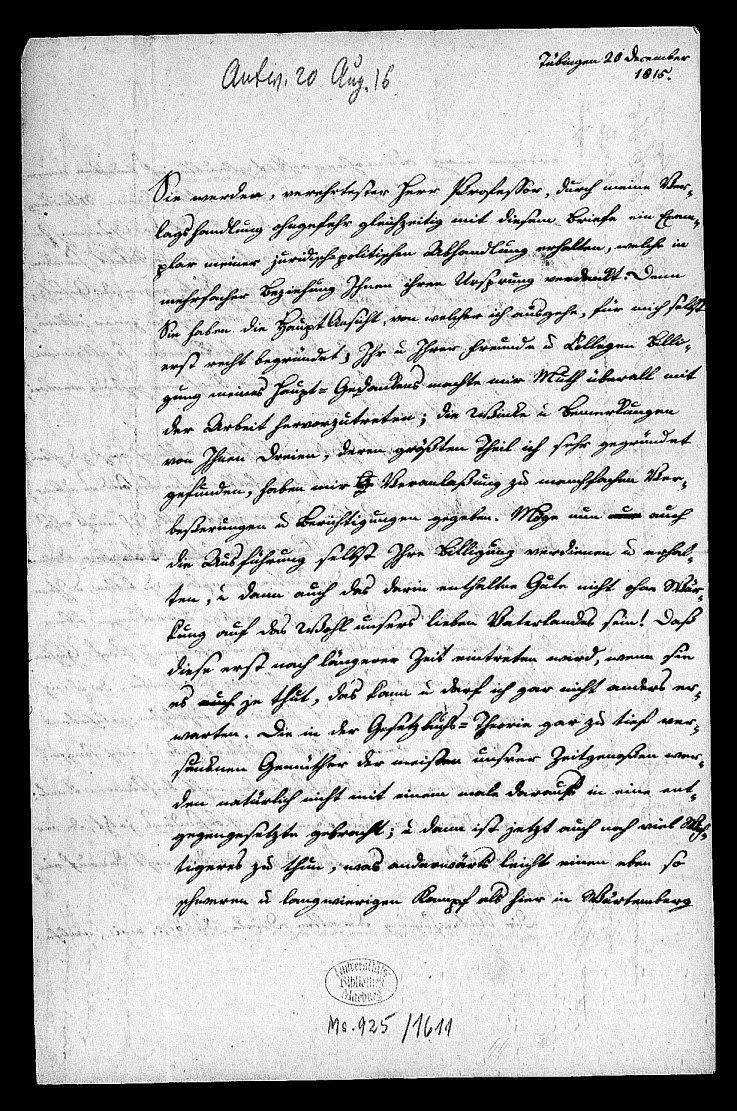 Tübingen 20 december
1815.
Antw. 20 Aug. 16
Sie werden, verehrtester Herr Professor, durch meine Ver-
lagshandlung ohngefehr gleichzeitig mit diesem Briefe ein Exem-
plar meiner juridisch politischen Abhandlung erhalten, welche in
mehrfacher Beziehung Ihnen ihren Ursprung verdenkt. Denn
Sie haben die Haupt Ansicht, von welcher ich ausgehe, für mich selbst
erst recht begründet; Ihr u Ihrer Freunde u Collegen Billi-
gung meines Haupt-Gedankens machte mir Muth überall mit
der Arbeit hervorzutreten; die Winke u Bemerkungen
von Ihnen Dreien, deren größten Theil ich sehr gegründet
gefunden, haben mir Veranlaßung zu mehrfachen Ver-
beßerungen u Berichtigungen gegeben. Möge nun auch
die Ausführung selbst Ihre Billigung verdienen u erhal-
ten, u dann auch das darin enthaltne Gute nicht ohne Wür-
kung auf das Wohl unsers lieben Vaterlandes sein! Daß
diese erst nach längerer Zeit eintreten wird, wenn sie
es auch je thut, das kann u darf ich gar nicht anders er-
warten. Die in der Gesetzbuchs-Theorie gar zu tief ver-
sunknen Gemüther der meisten unsrer Zeitgenoßen wer-
den natürlich nicht mit einem male daraus in eine ent-
gegengesetzte gebracht; u dann ist jetzt auch noch viel Wich-
tigeres zu thun, was anderwärts leicht einen eben so
schweren u langwierigen Kampf als hier in Würtemberg
Universitäts-
Bibliothek
Marburg
Ms. 925/1611